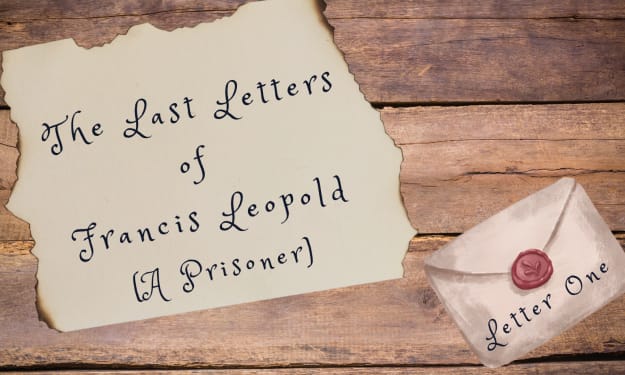 The Last Letters
of
Francis Leopold
(A Prisoner)
Letter One